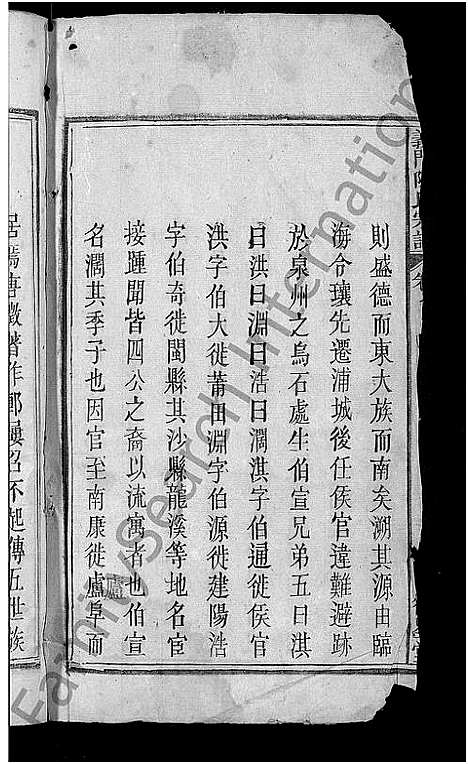 義門陳氏宗譜
則盛德而東大族而南矣溯其源由臨
海令瓌先遷浦城後任侯官違難避跡
於泉州之烏石處生伯宣兄弟五曰淇
曰洪曰淵曰浩曰濶淇字伯通徙侯官
洪字伯大徙莆田淵字伯源徙建陽浩
字伯奇徙閩縣其沙縣龍溪等地名宦
接踵聞皆四公之裔以流寓者也伯宣
名濶其季子也因官至南康徙廬阜而
廬
居焉唐徵著作郎屢召不起傳五世族
FamilySearch International